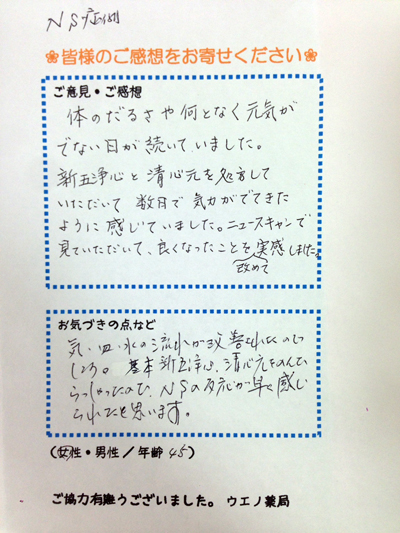 NS症例
皆様のご感想をお寄せください
ご意見・ご感想
体のだるさや何となく元気が
でない日が続いていました。
新五浄心と清心元を処方して
いただいて 数日で気力がでてきた
ように感じていました。ニュースキャンで
見ていただいて、良くなったことを実感しました。
改めて
お気づきの点など
気・血・水の流れが改善されたのでし
ょう。基本新五浄心、清心元をのんで
らっしゃったので、NSの反応が早く感じ
られたと思います。
(女性・男性/年齢 45)
ご協力有難うございました。 ウエノ薬局